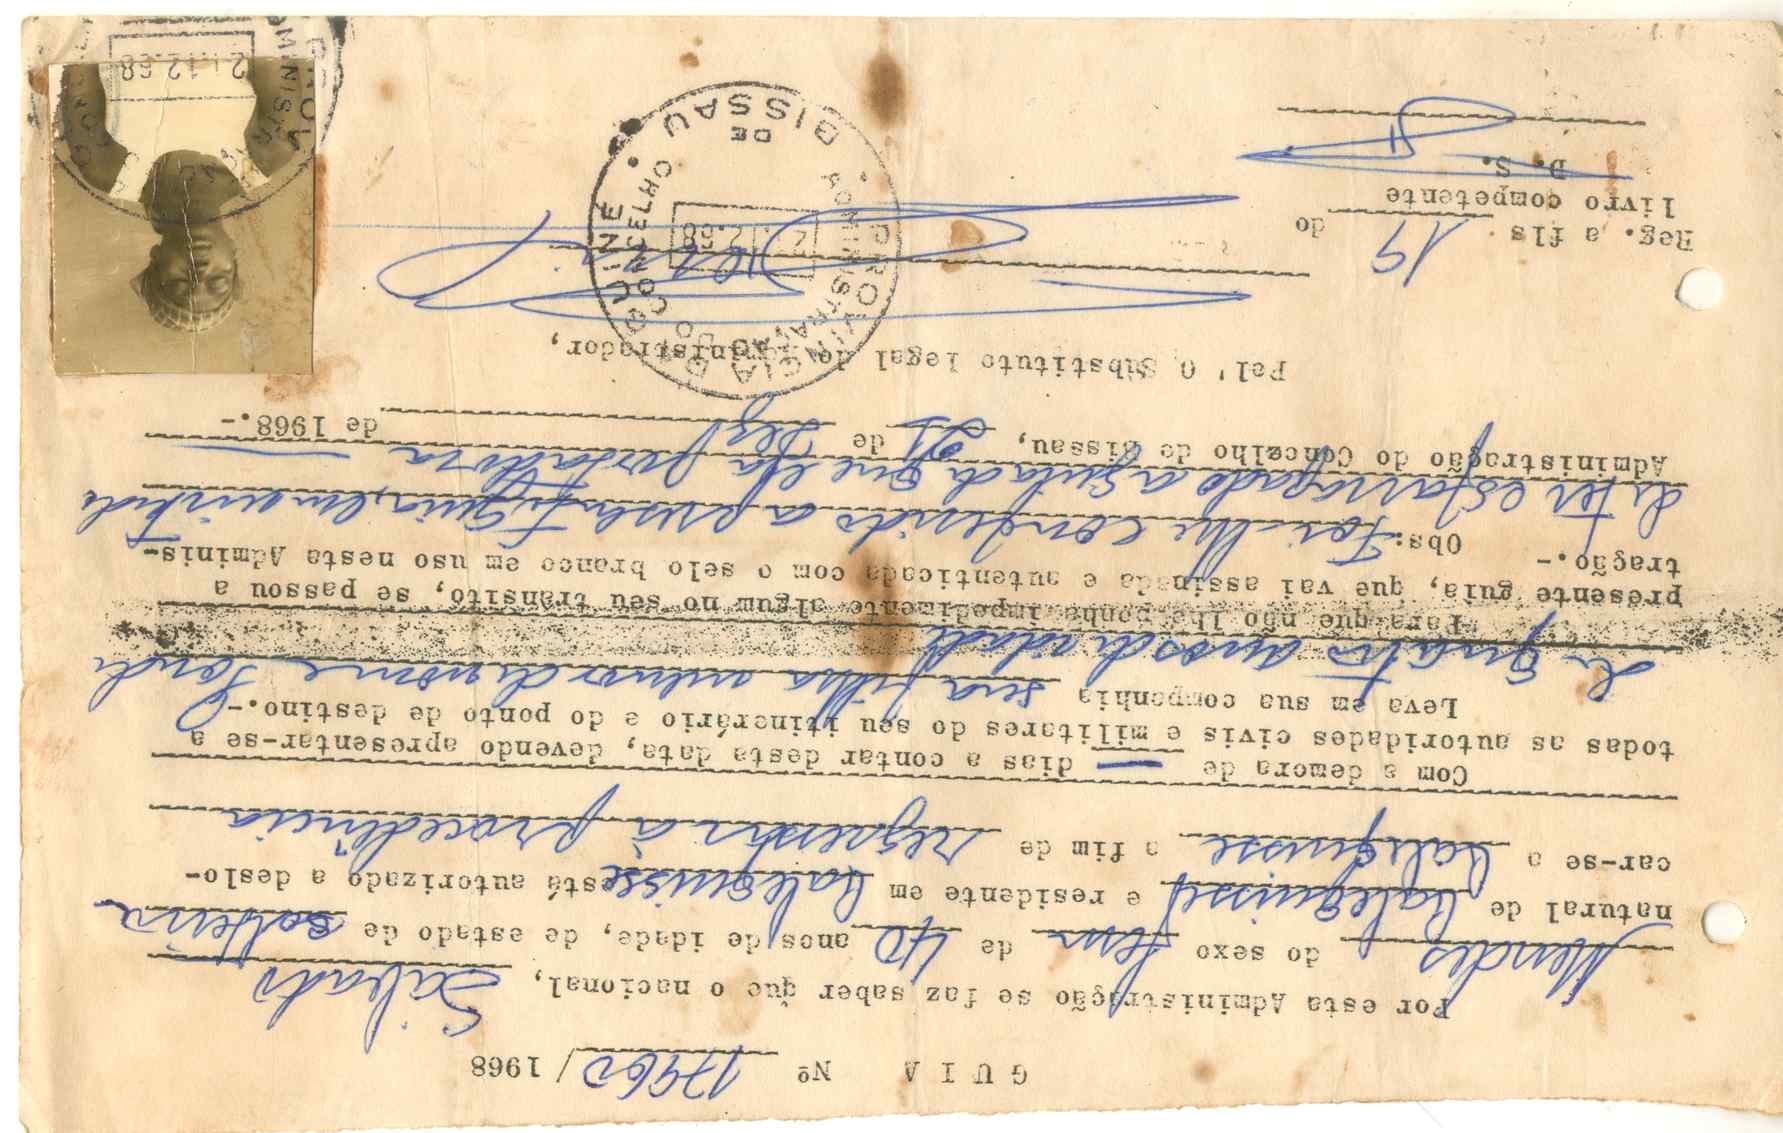 GUIA Nº 17960/1968
Por esta Administração se faz saber que o nacional, Sábado
Mendes, do sexo fem de 40 anos de idade, de estado de solteira
natural de Calequisse e residente em Calequisse está autorizado a deslo-
car-se a Calequisse a fim de regressar à procedência
Com a demora de — dias a contar desta data, devendo apresentar-se a
todas as autoridades civis e militares do seu itinerário e do ponto de destino.-
Leva em sua companhia sua filha menor de nome
de quatro anos de idade
Para que não lhe ponha impedimento algum no seu trânsito, se passou a
presente guia, que vai assinada e autenticada com o selo branco em uso nesta Adminis-
tração.-
Obs: Foi-lhe conferido a presente guia, em virtude
de ter estarragado a guia de que era portadora
Administração do Concelho de Bissau, 21 de Dezº de 1968.-
Pel' O Substituto legal do Administrador,
Reg. a fls 19 do
livro competente
D. S.
PROVÍNCIA DA GUINÉ
ADMINISTRAÇÃO DO CONCELHO
DE
BISSAU
21.12.68
21.12.68